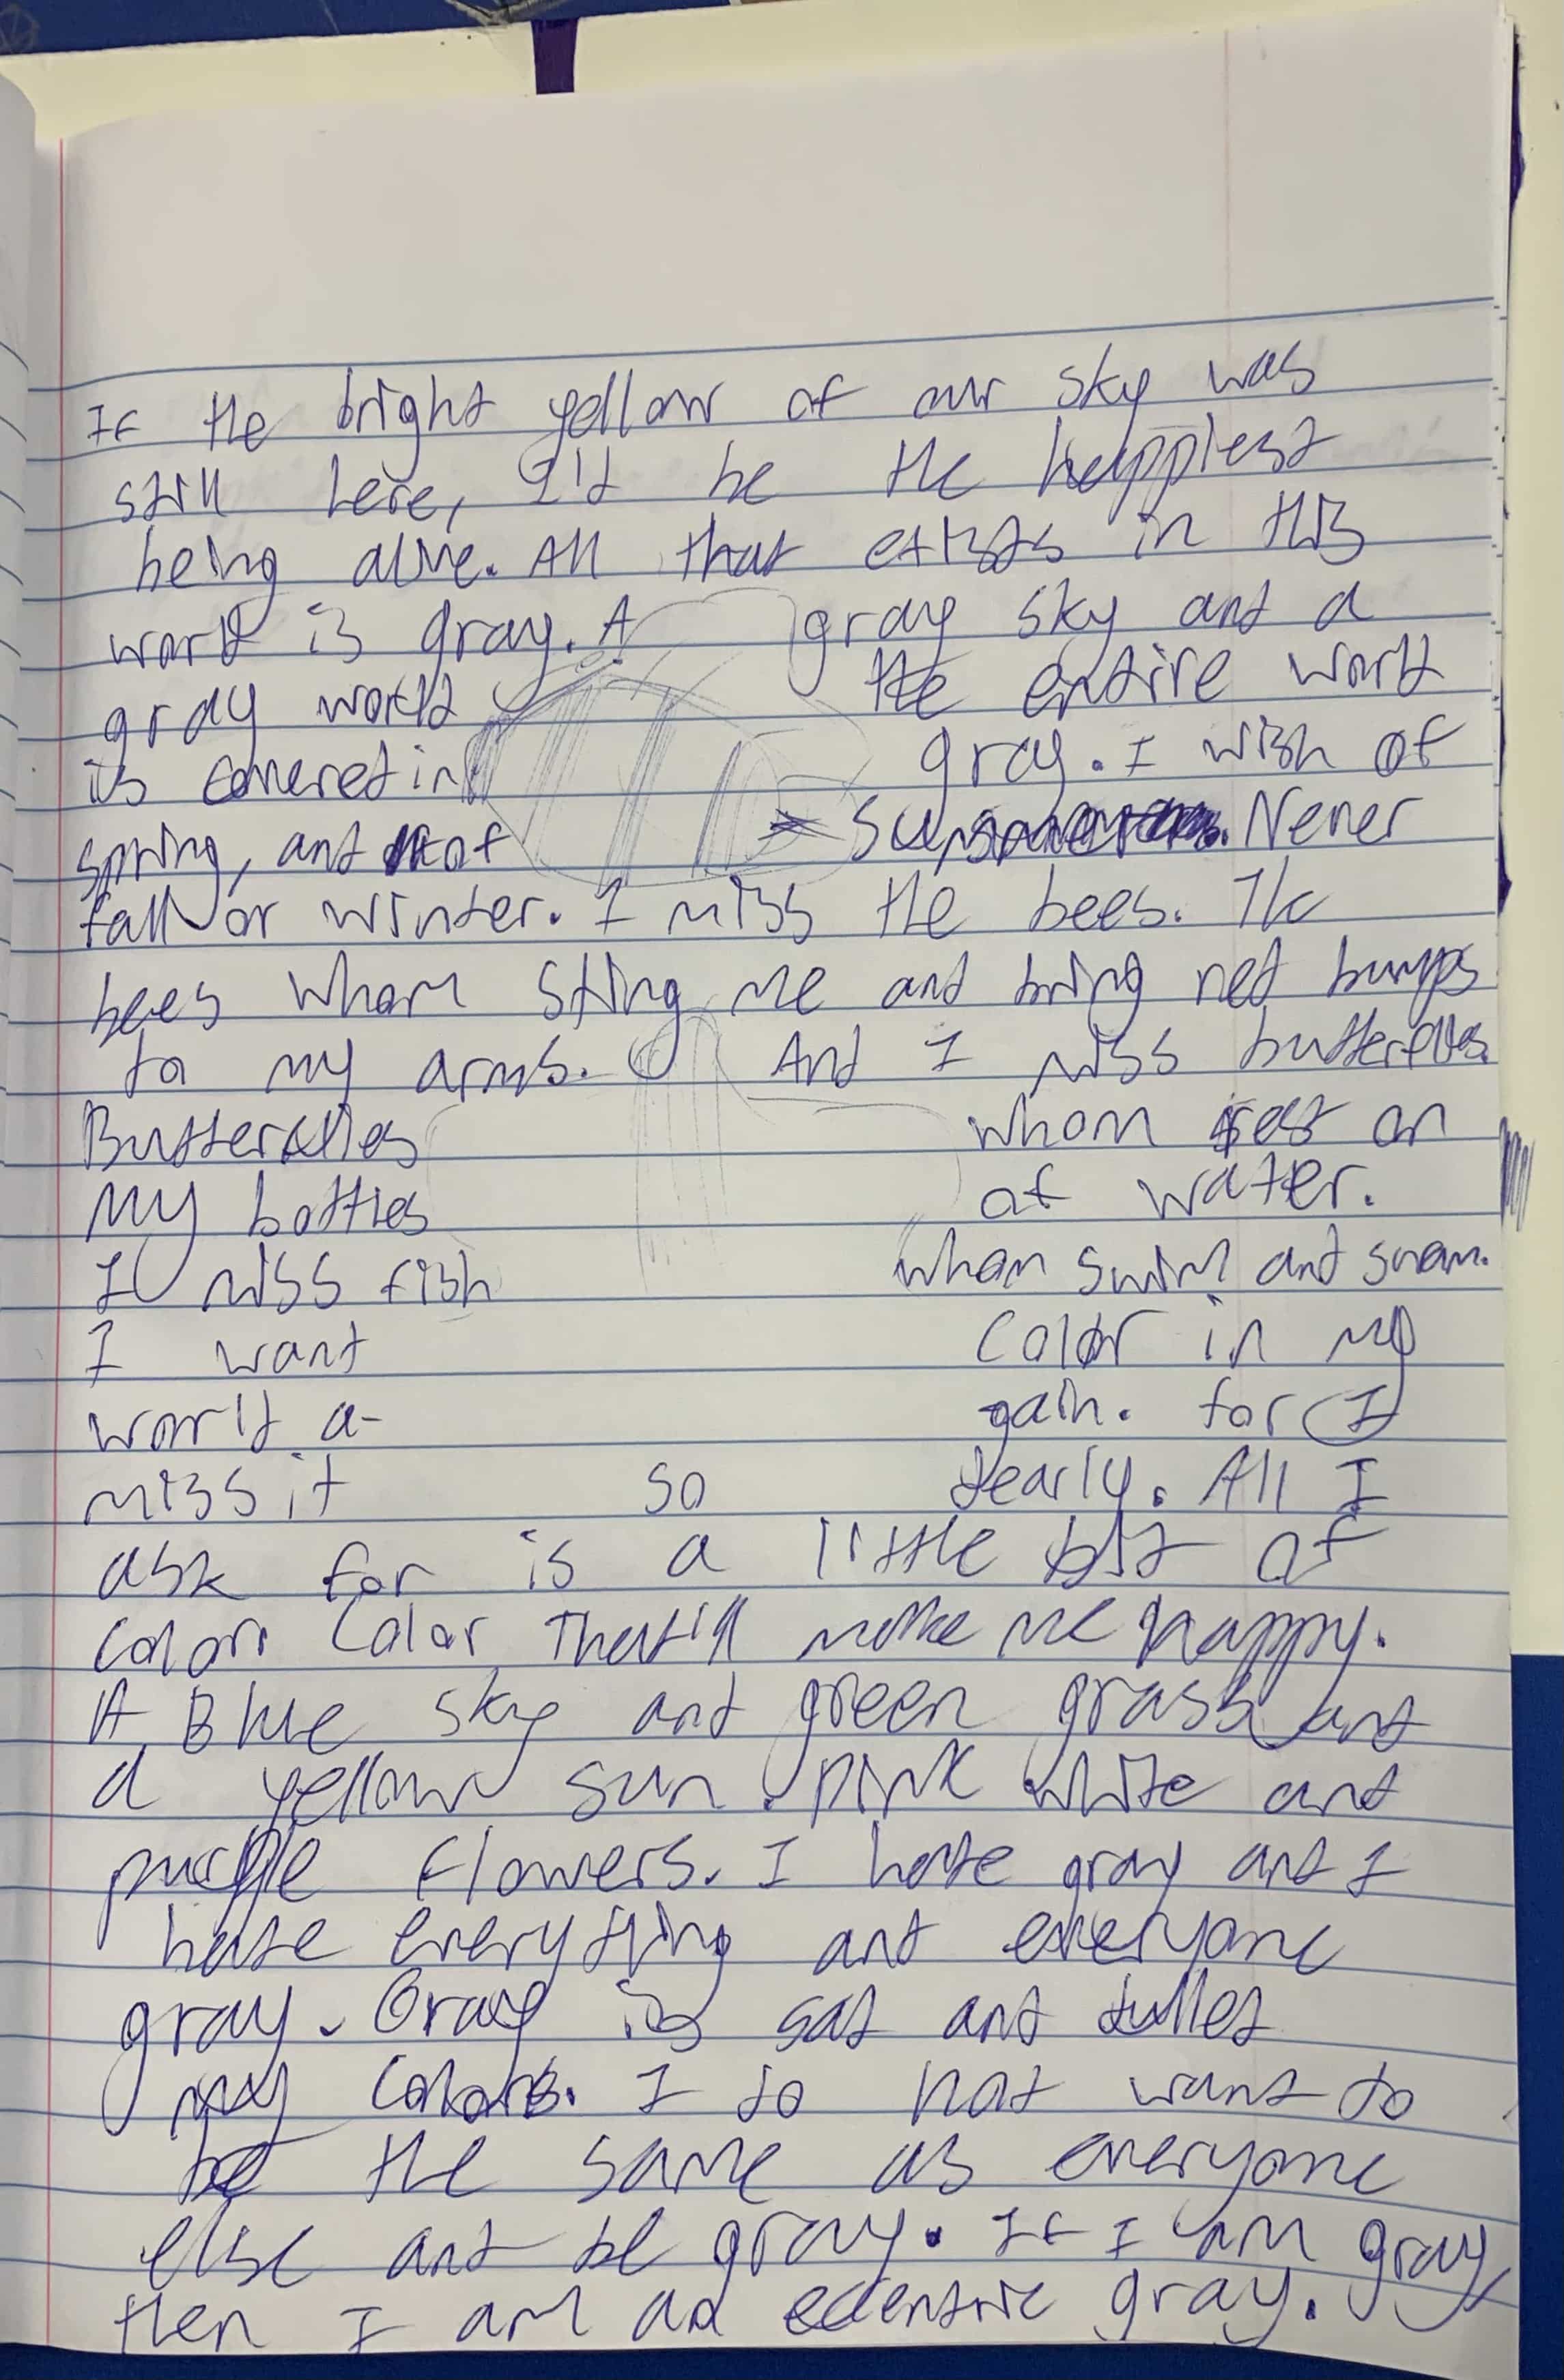 If the bright yellow of our sky was
still here, I'd be the happiest
being alive. All that exists in this
world is gray. A gray sky and a
gray world the entire world
is covered in gray. I wish of
spring, and of summer. Never
fall or winter. I miss the bees. The
bees whom sting me and bring red bumps
to my arms. And I miss butterflies.
Butterflies whom rest on
my bottles of water.
I miss fish whom swim and swam.
I want color in my
world a- gain. for I
miss it so dearly. All I
ask for is a little bit of
color. Color that'll make me happy.
A Blue sky and green grass and
a yellow sun. pink white and
purple flowers. I hate gray and I
hate everything and everyone
gray. Gray is sad and dulled
my colors. I do not want to
be the same as everyone
else and be gray. If I am gray,
then I am an ecentric gray.